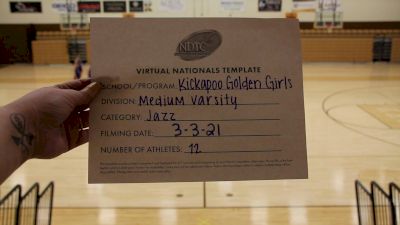 NDTC
VIRTUAL NATIONALS TEMPLATE
SCHOOL/PROGRAM: Kickapoo Golden Girls
DIVISION: Medium Varsity
CATEGORY: Jazz
FILMING DATE: 3-3-21
NUMBER OF ATHLETES: 12